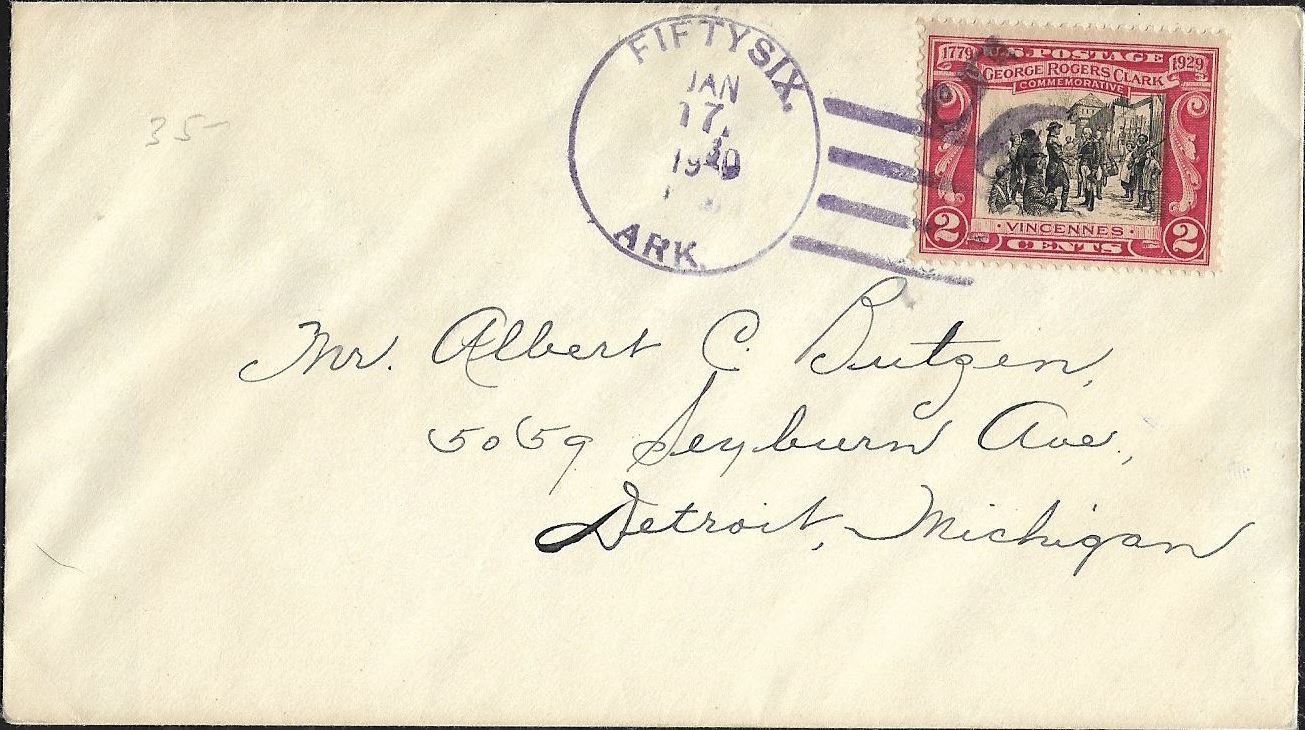 FIFTYSIX,
JAN
17,
ARK.
1779 U.S. POSTAGE 1929
GEORGE ROGERS CLARK
COMMEMORATIVE
2 VINCENNES 2
CENTS
35-
Mr. Albert C. Butzen,
5059 Seyburn Ave.,
Detroit, Michigan